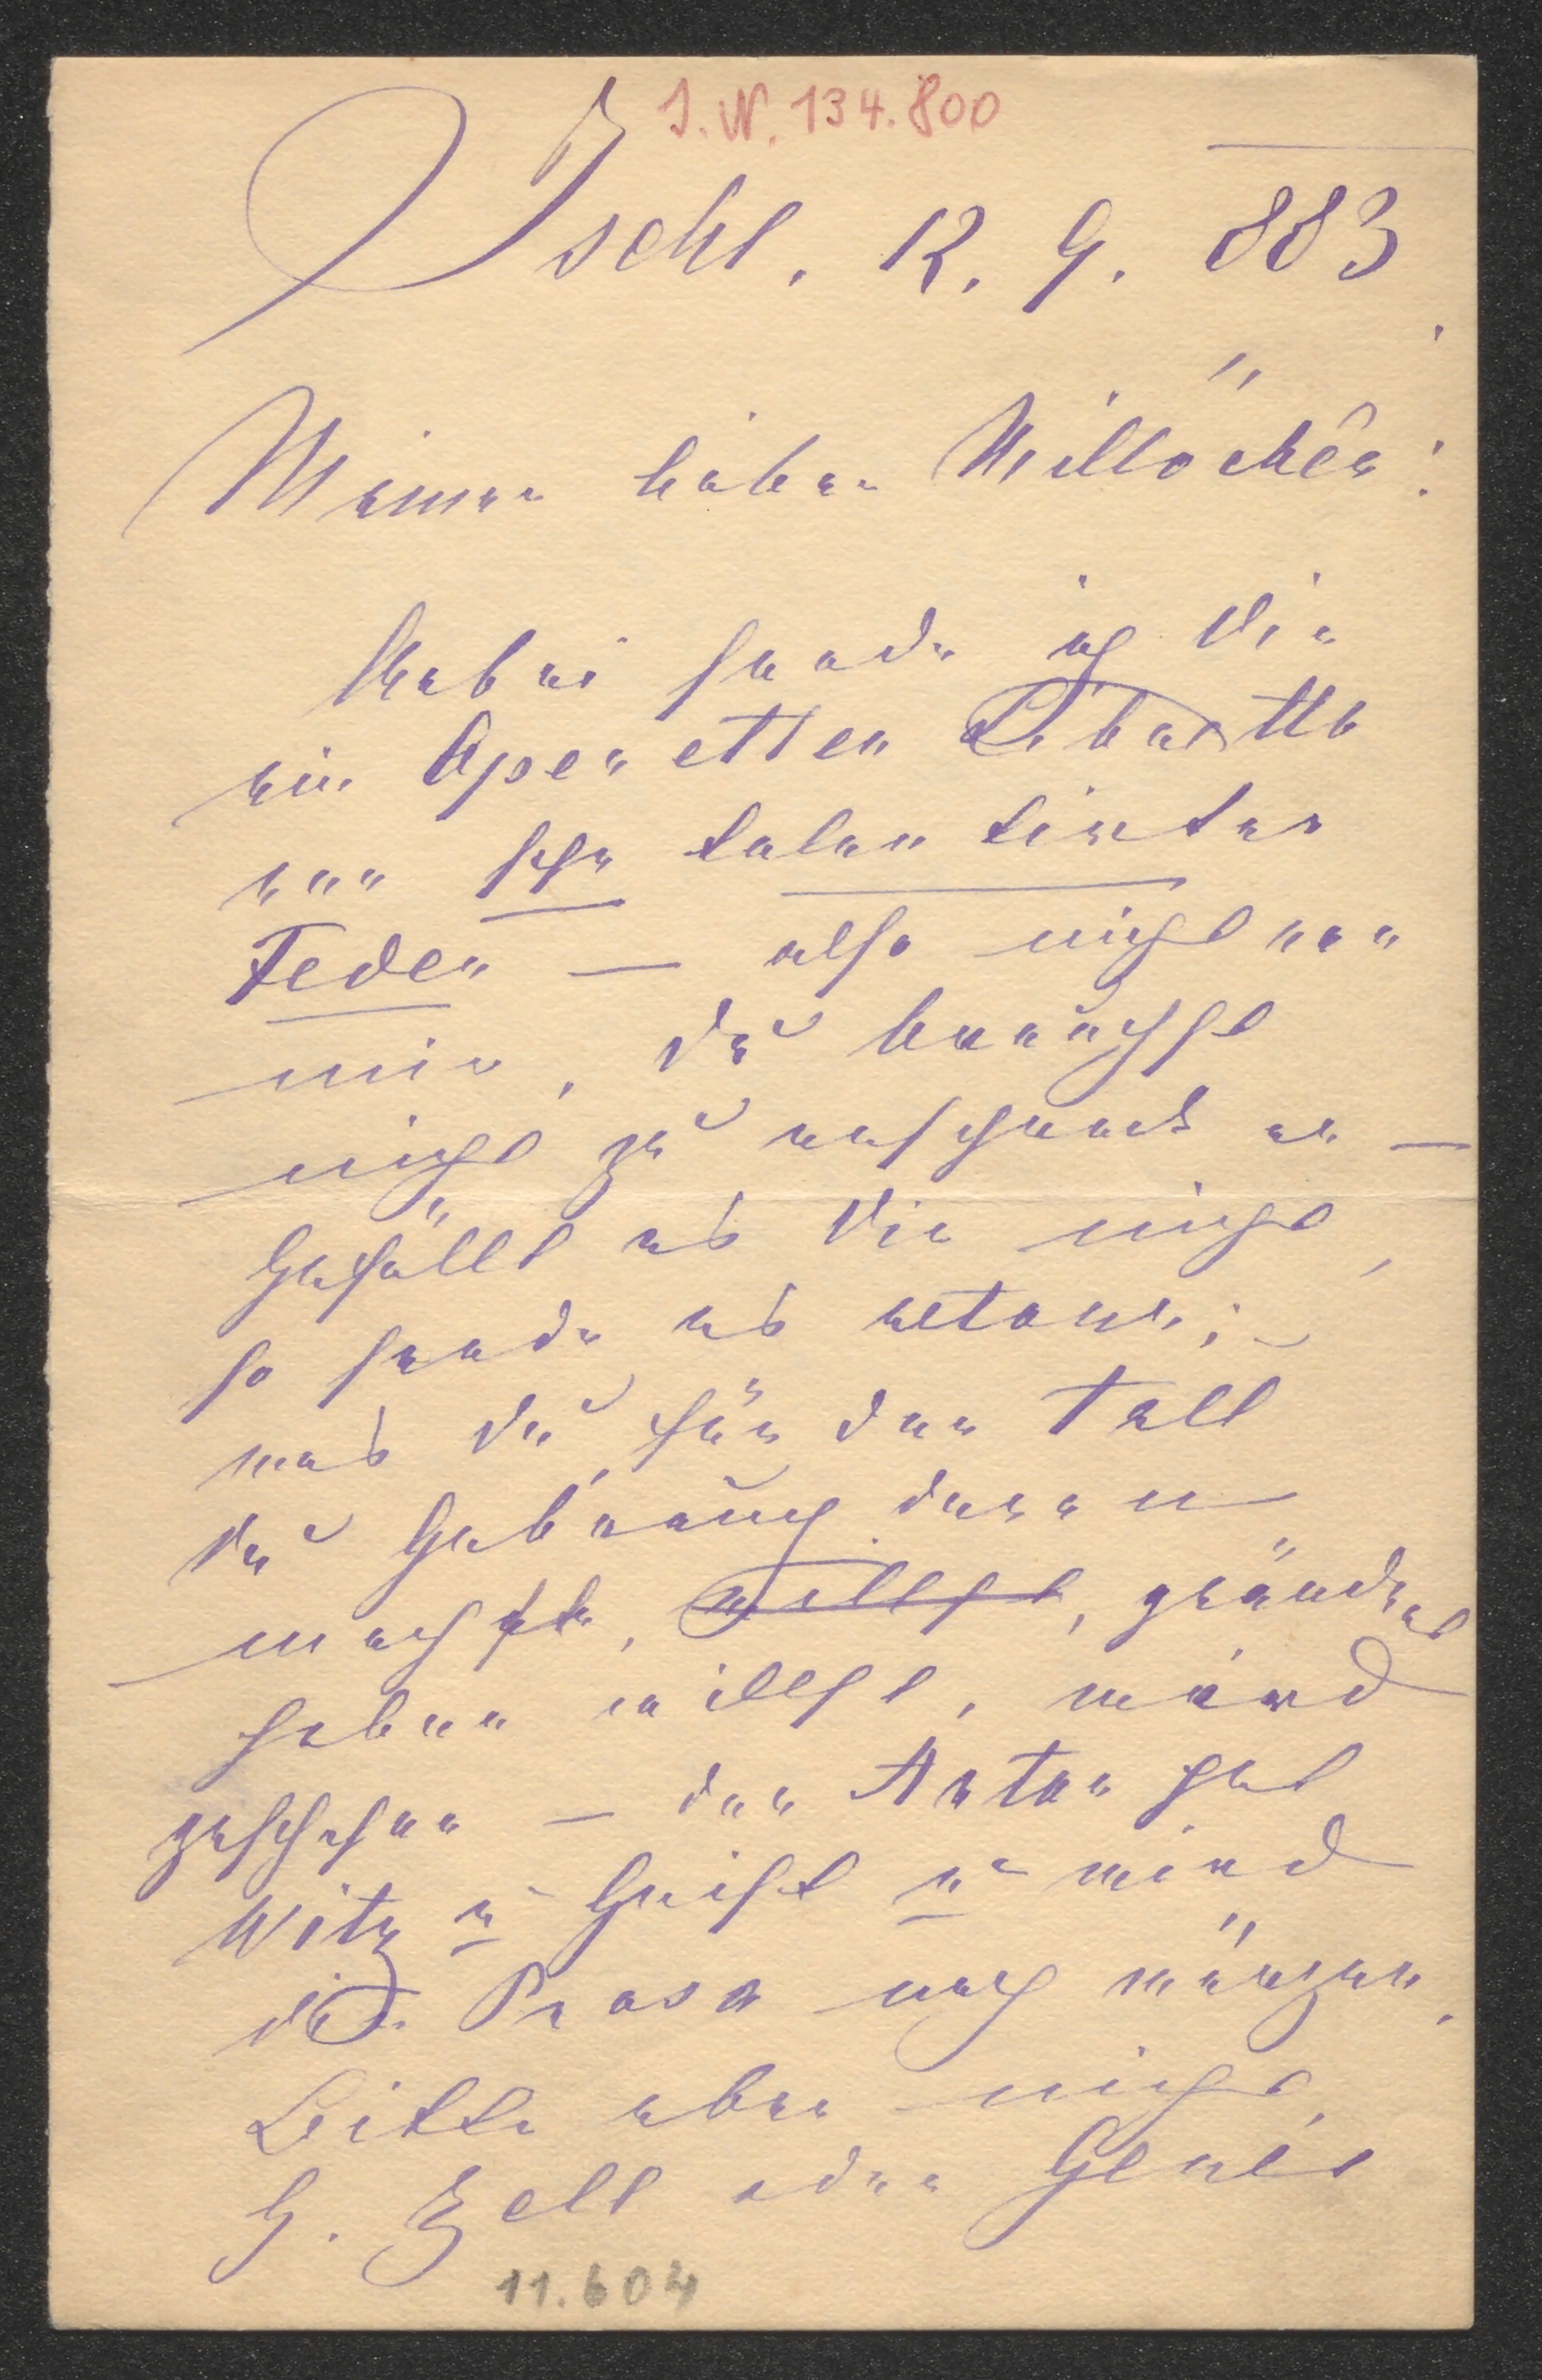 I.N. 134.800
Ischl. 12. 9. 883
Meinen lieben Millöcker!
Anbei sende ich Dir
ein Operetten Libretto
von sehr talentirter
Feder — also nicht von
mir. Du brauchst
nicht zu erschrecken —
Gefällt es Dir nicht,
so sende es retour; –
was Du für den Fall
Du Gebrauch davon
machst, willst, geändert
haben willst, wird
geschehen — der Autor hat
Witz u Geist u wird
die Prosa noch würzen.
Bitte aber nicht
H. Zell oder Genée
11.604